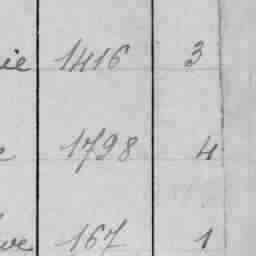 ie 1416 3
e 1798 4
ve 167 1